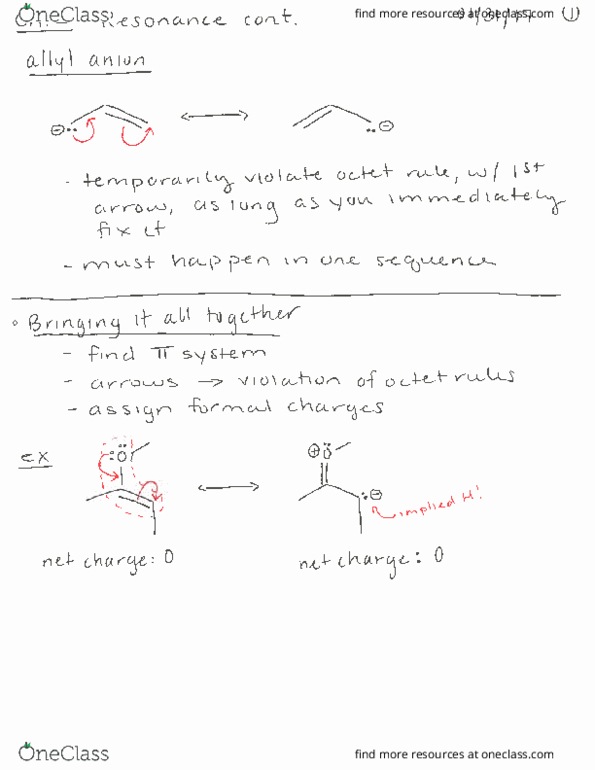 OneClass
find more resources at oneclass.com
1
Resonance cont.
allyl anion
⊖ ··
·· ⊖
- temporarily violate octet rule, w/ 1st
arrow, as long as you immediately
fix it
- must happen in one sequence
° Bringing it all together
- find π system
- arrows → violation of octet rules
- assign formal charges
ex
:Ö
⊕ Ö
:⊖
implied H!
net charge: 0
net charge: 0
OneClass
find more resources at oneclass.com